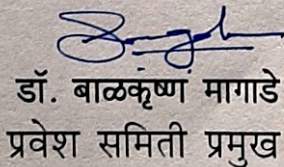 डॉ. बाळकृष्ण मागाडे
प्रवेश समिती प्रमुख